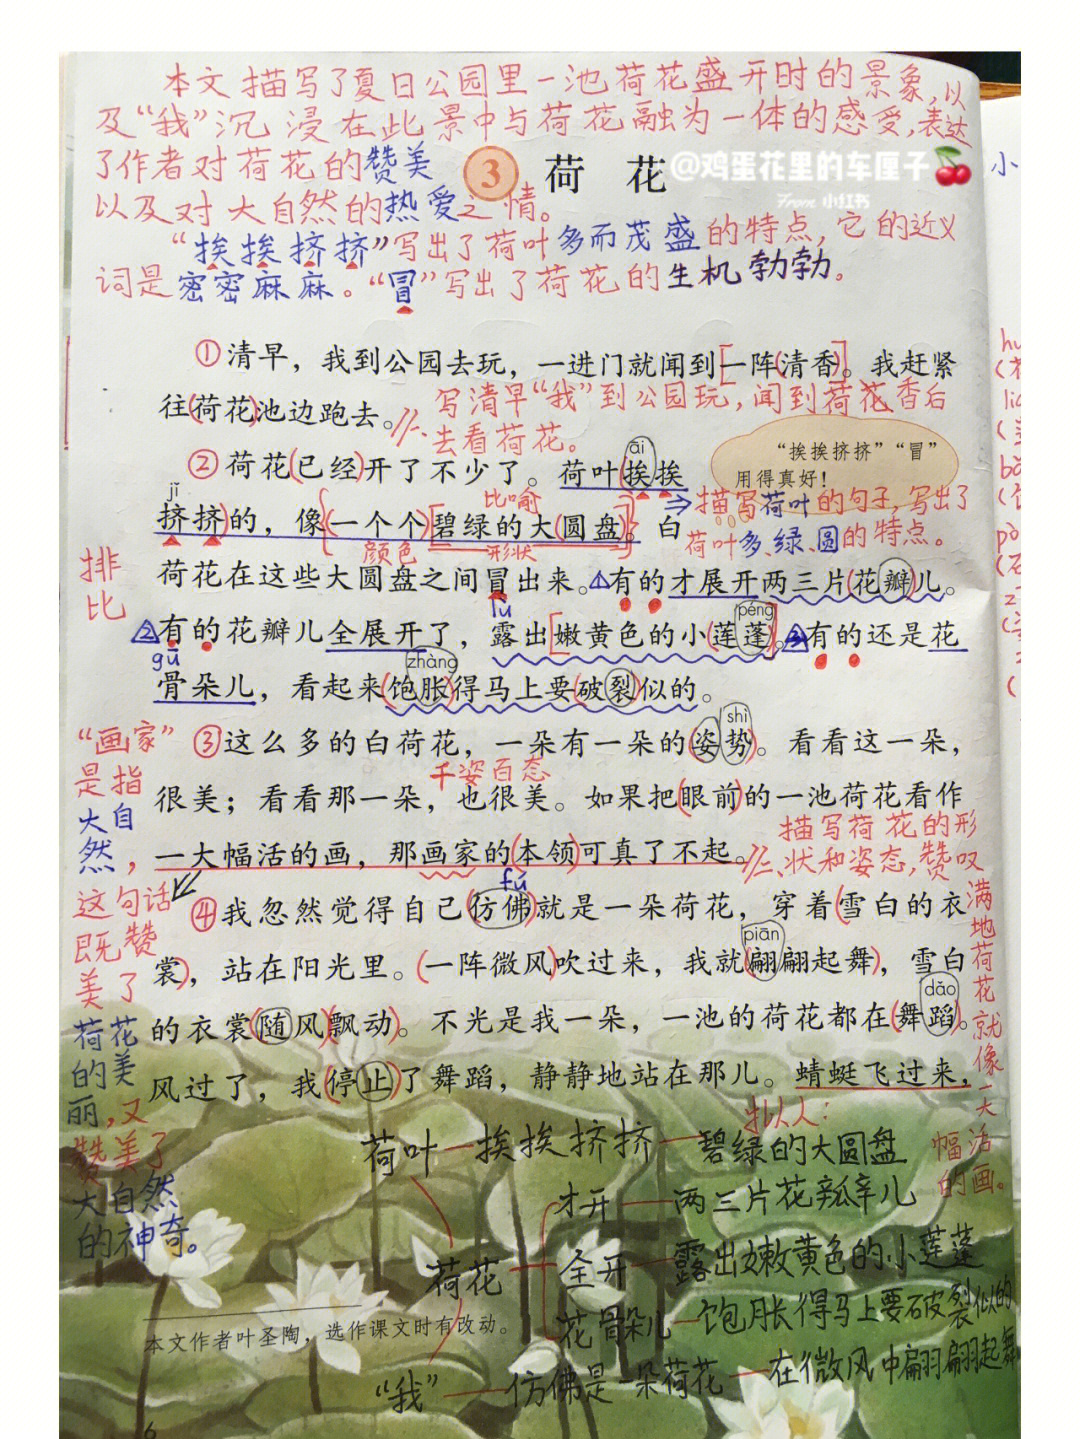 本文描写了夏日公园里一池荷花盛开时的景象,以
及“我”沉浸在此景中与荷花融为一体的感受,表达
了作者对荷花的赞美
以及对大自然的热爱之情。
3 荷 花
@鸡蛋花里的车厘子
From 小红书
小
“挨挨挤挤”写出了荷叶多而茂盛的特点,它的近义
词是密密麻麻。“冒”写出了荷花的生机勃勃。
①清早，我到公园去玩，一进门就闻到[一阵(清香]。我赶紧
往(荷花)池边跑去。
写清早“我”到公园玩,闻到荷花香后
去看荷花。
“挨挨挤挤”“冒”
用得真好!
āi
②荷花(已经)开了不少了。荷叶(挨挨
jǐ
比喻
挤挤)的，像{(一个个)[碧绿的大(圆盘)]}。白
颜色 形状
描写荷叶的句子,写出了
荷叶多、绿、圆的特点。
排
比
荷花在这些大圆盘之间冒出来。1有的才展开两三片(花瓣)儿。
lù
péng
2有的花瓣儿全展开了，露出[嫩黄色的小(莲蓬)]。3有的还是花
gū
zhàng
骨朵儿，看起来(饱胀)得马上要(破裂)似的。
shì
③这么多的白荷花，一朵有一朵的(姿势)。看看这一朵，
千姿百态
很美；看看那一朵，也很美。如果把(眼前)的一池荷花看作
一大幅活的画，那画家的(本领)可真了不起。
描写荷花的形
状和姿态,赞叹
满地荷花就像一大
幅活
的画。
“画家”
是指
大自
然,
这句话
既赞
美了
荷花
的美
丽,又
赞美了
大自然
的神奇。
fú
④我忽然觉得自己(仿佛)就是一朵荷花，穿着(雪白的衣
piān
裳)，站在阳光里。(一阵微风)吹过来，我就(翩翩起舞)，雪白
dǎo
的衣裳(随风)(飘动)。不光是我一朵，一池的荷花都在(舞蹈)。
风过了，我(停止)了舞蹈，静静地站在那儿。蜻蜓飞过来，
拟人:
荷叶—挨挨挤挤—碧绿的大圆盘
才开—两三片花瓣儿
荷花
全开—露出嫩黄色的小莲蓬
花骨朵儿—饱胀得马上要破裂似的
“我”—仿佛是一朵荷花—在微风中翩翩起舞
本文作者叶圣陶，选作课文时有改动。
6